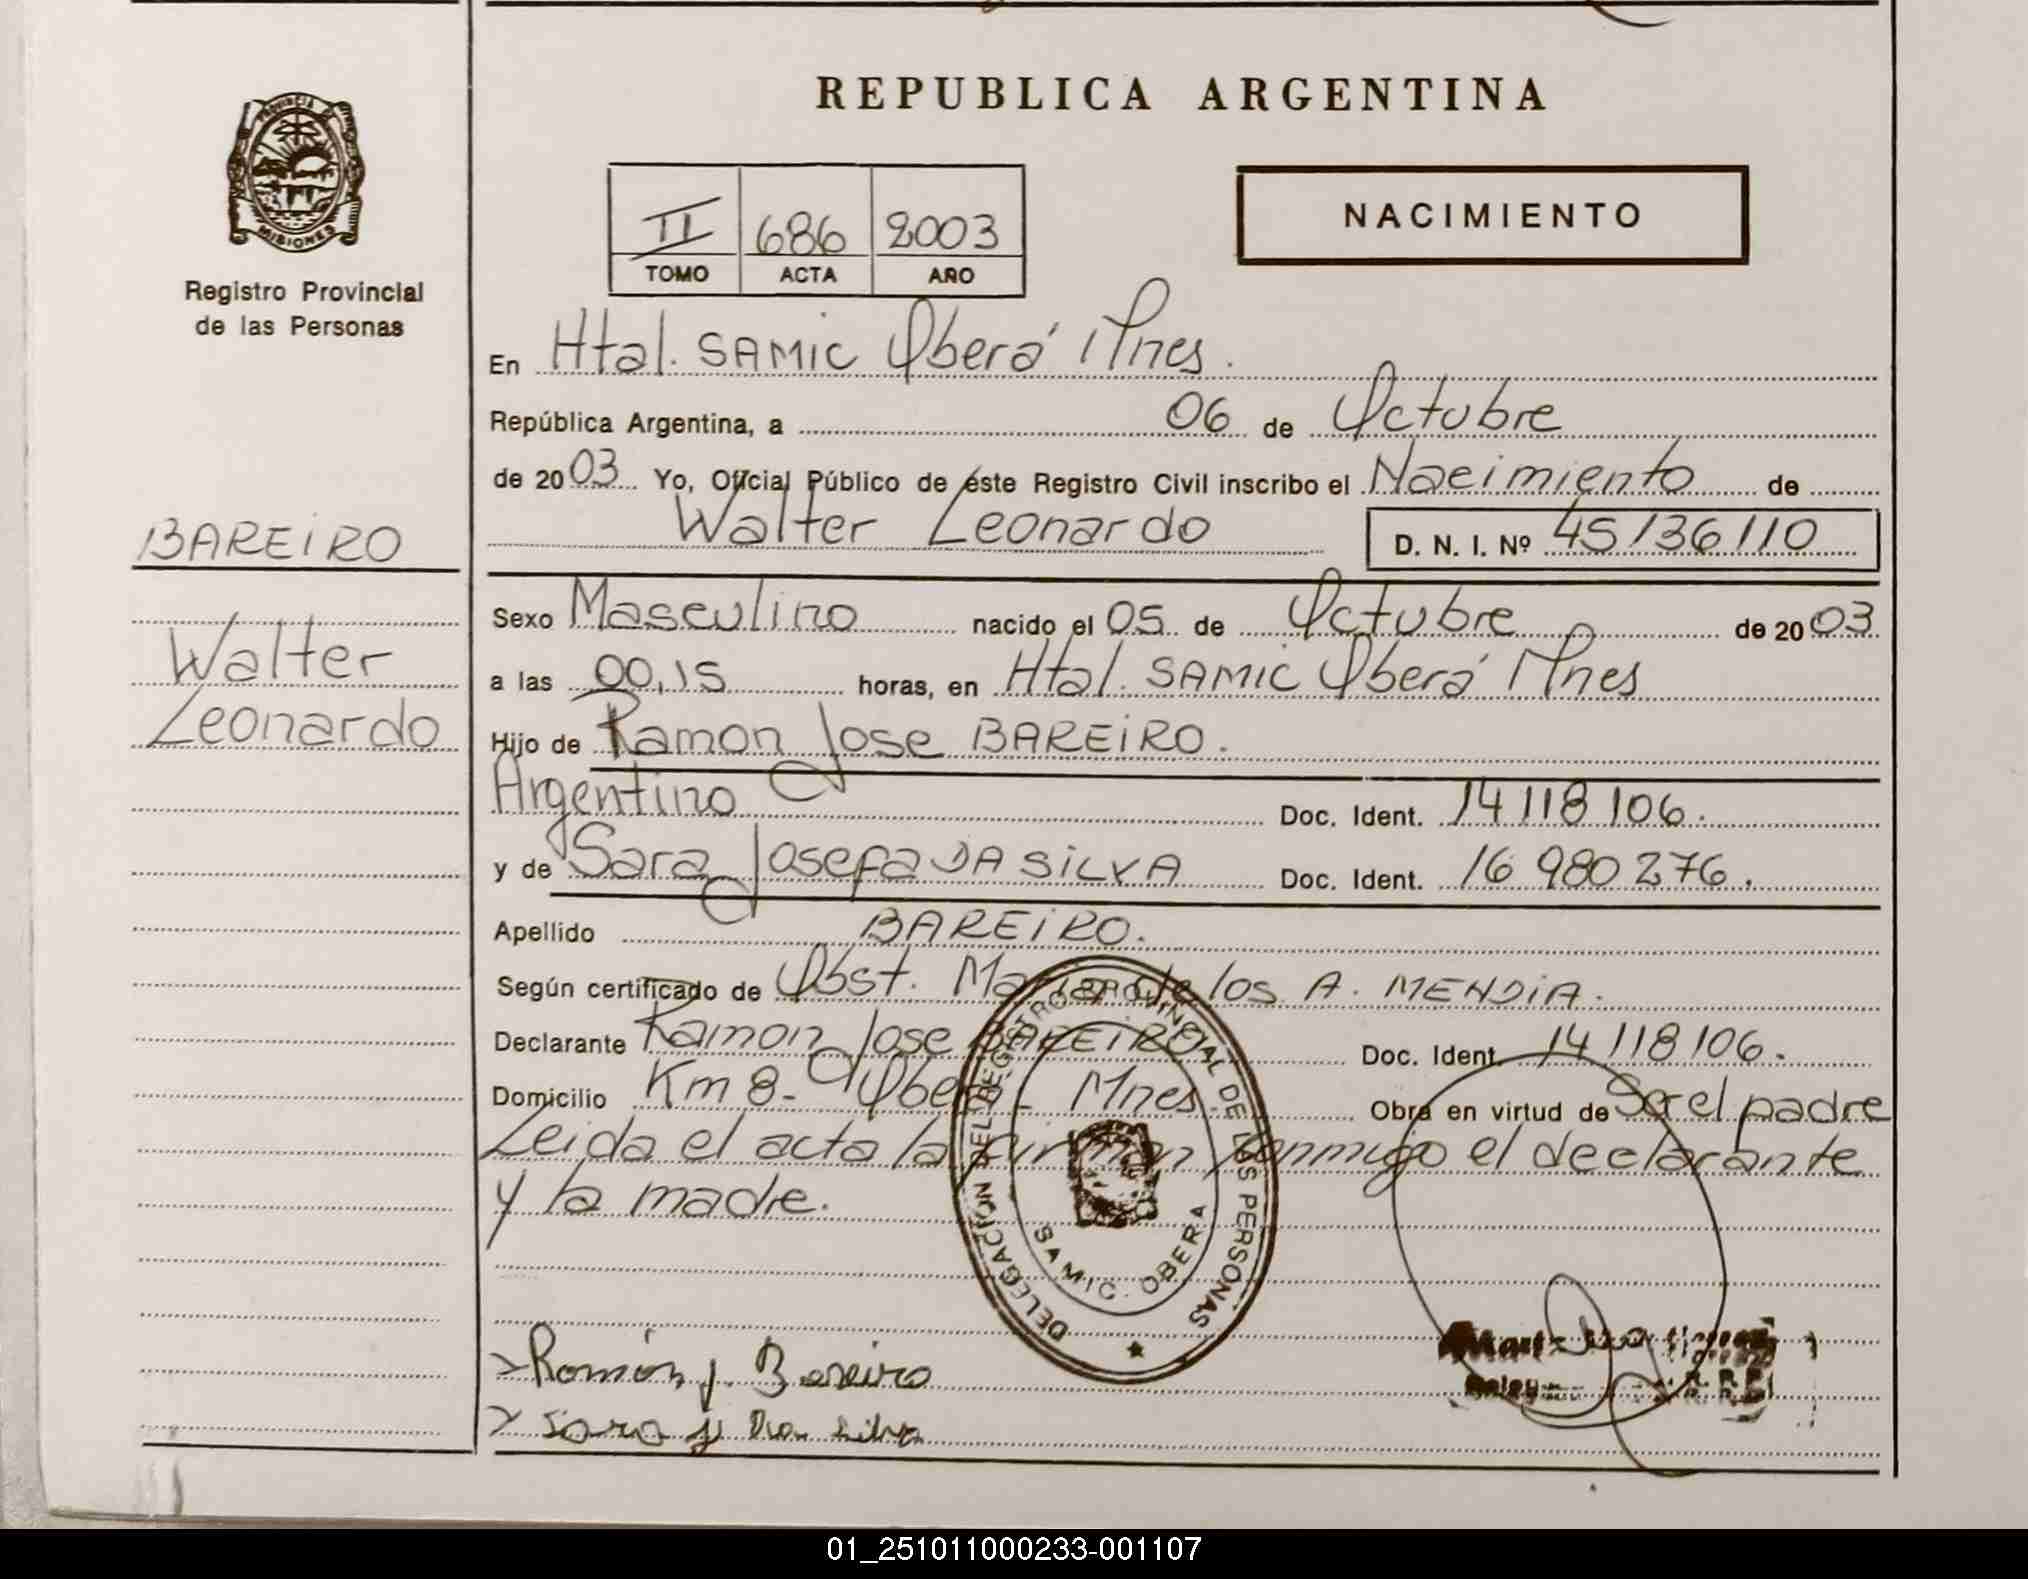 REPUBLICA ARGENTINA
PROVINCIA DE
MISIONES
Registro Provincial
de las Personas
II 686 2003
TOMO ACTA AÑO
NACIMIENTO
En Htal. SAMIC Oberá Mnes.
República Argentina, a 06 de Octubre
de 2003 Yo, Oficial Público de éste Registro Civil inscribo el Nacimiento de
Walter Leonardo D. N. I. Nº 45136110
BAREIRO
Walter
Leonardo
Sexo Masculino nacido el 05 de Octubre de 2003
a las 00,15 horas, en Htal. SAMIC Oberá Mnes
Hijo de Ramon Jose BAREIRO.
Argentino Doc. Ident. 14118106.
y de Sara Josefa DA SILVA Doc. Ident. 16980276.
Apellido BAREIRO.
Según certificado de Obst. Maria de los A. MENDIA.
Declarante Ramon Jose BAREIRO Doc. Ident. 14118106.
Domicilio Km 8- Oberá- Mnes. Obra en virtud de Ser el padre
Leida el acta la firman conmigo el declarante
y la madre.
DELEGACION DEL REGISTRO PROVINCIAL DE LAS PERSONAS
SAMIC. OBERA
Ramón J. Bareiro
Sara J Da silva
01_251011000233-001107